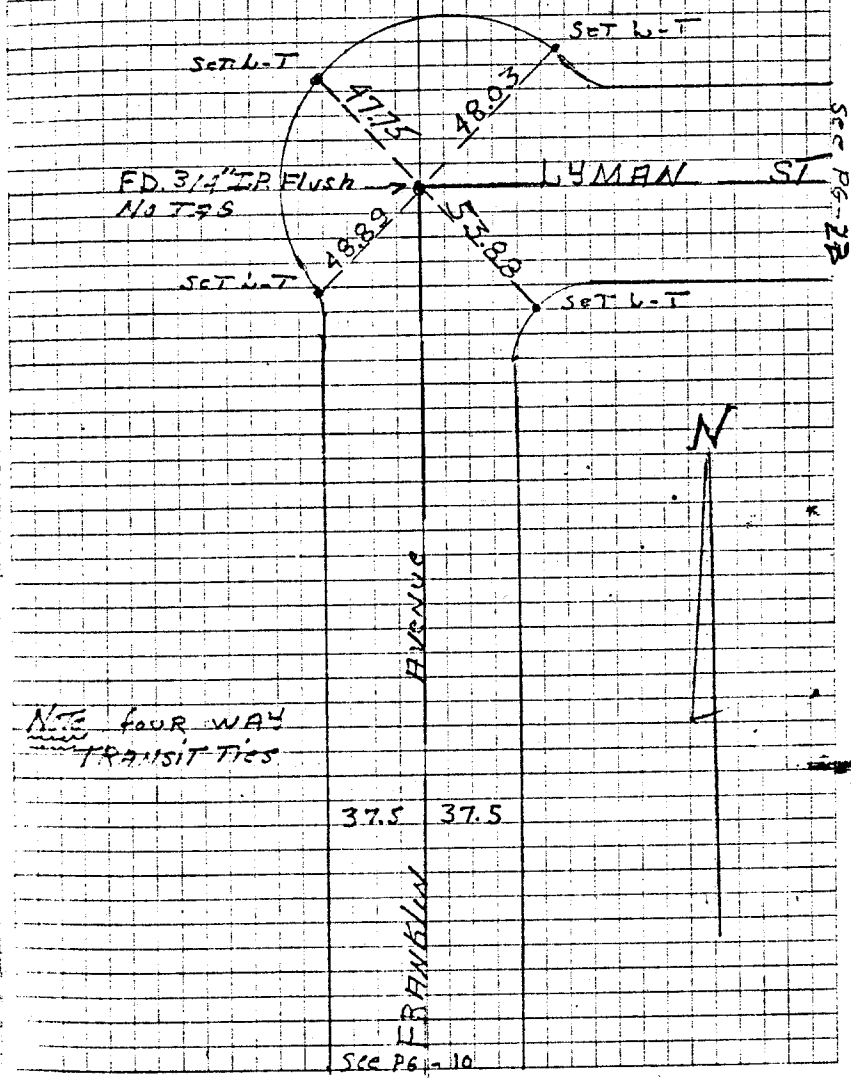 SET L-T
SET L-T
47.75
48.03
FD. 3/4" I.P. Flush
NO TAG
LYMAN ST
SEE PG-2B
48.89
53.88
SET L-T
SET L-T
N
AVENUE
NOTE FOUR WAY
TRANSIT TIES
37.5 37.5
FRANKLIN
SEE PG-10